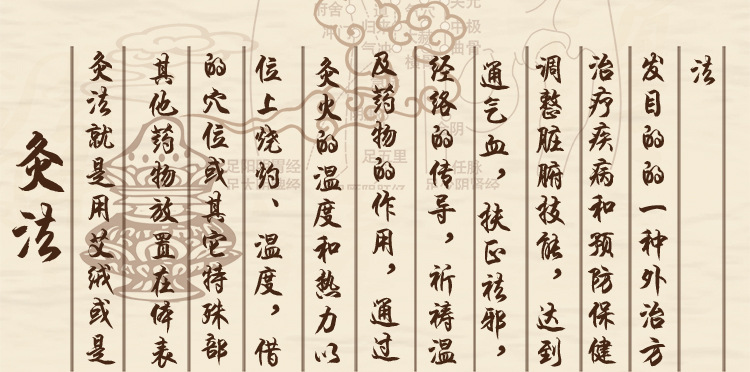 灸法
灸法就是用艾绒或是
其他药物放置在体表
的穴位或其它特殊部
位上烧灼、温度,借
灸火的温度和热力以
及药物的作用,通过
经络的传导,祈祷温
通气血,扶正祛邪,
调整脏腑技能,达到
治疗疾病和预防保健
发目的的一种外治方
法
中极
曲骨
足五里
任脉